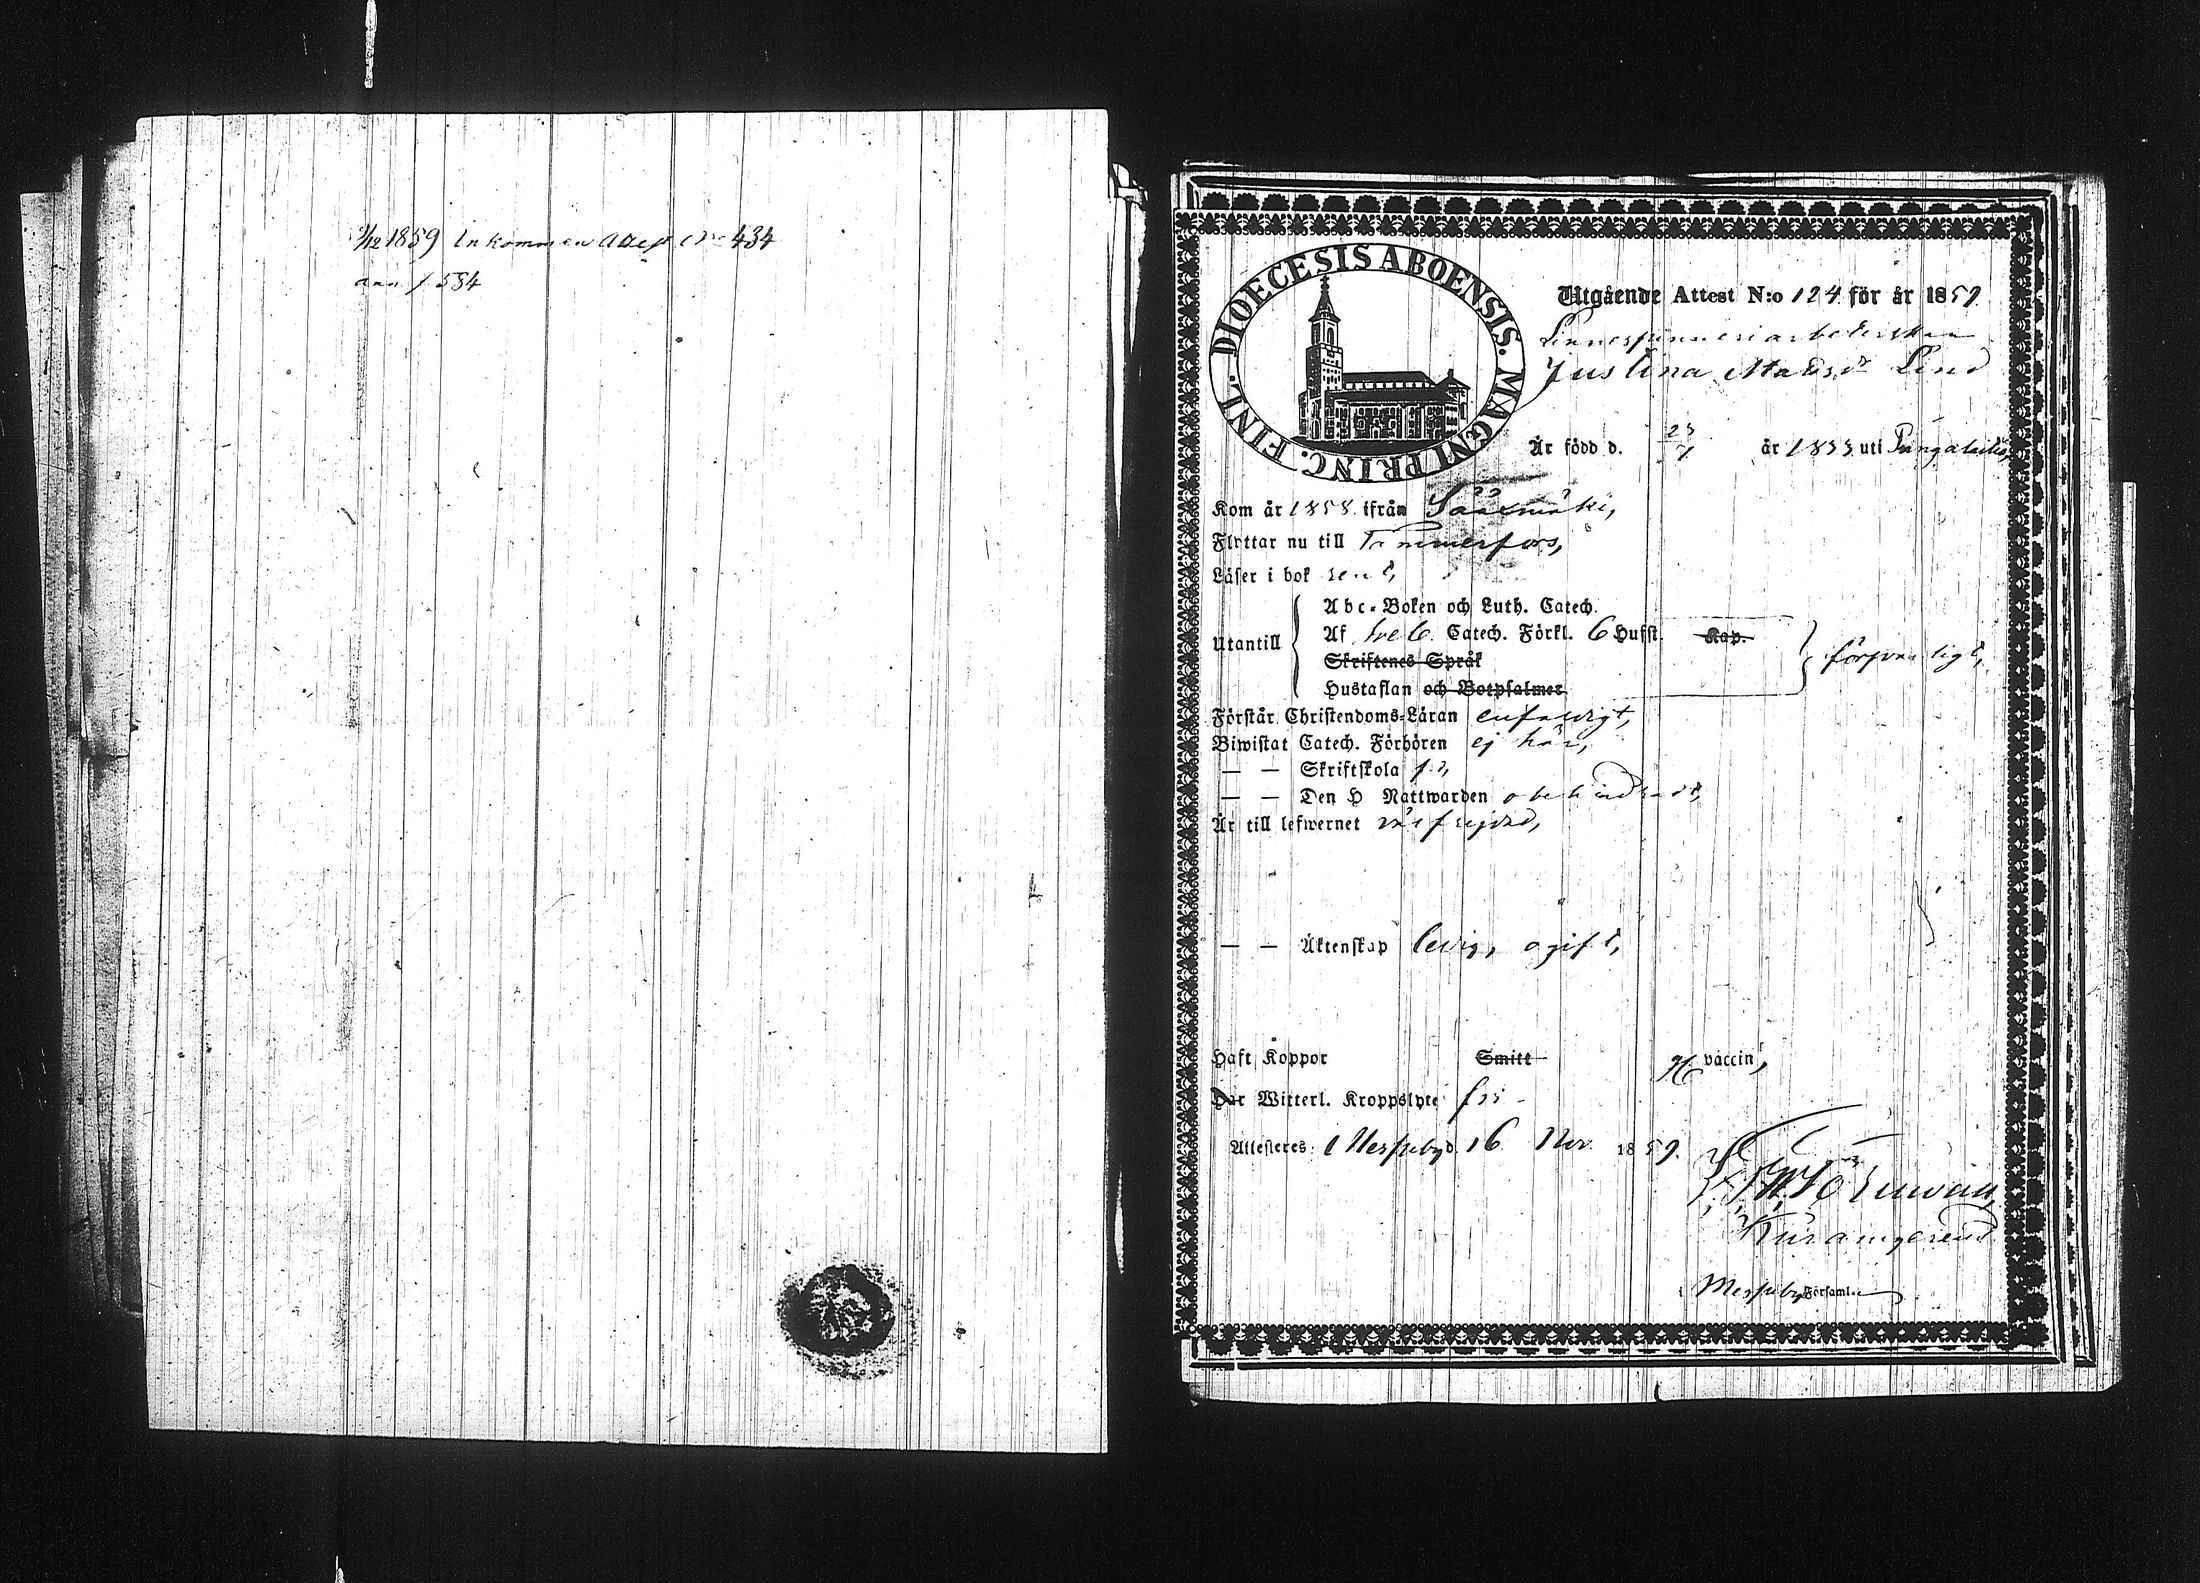 1/12 1859 Inkommen Attest No 434
pag. 534
DIOECESIS ABOENSIS. MAGNI PRINC. FINL.
Utgående Attest N:o 124 för år 1859
Linnespinneriarbeterskan
Justina Matsdr Lind
Är född d. 23/7 år 1833 uti Pungalaitio,
Kom år 1858 ifrån Sääxmäki,
Flyttar nu till Tammerfors,
Läser i bok rent,
Abc-Boken och Luth. Catech.
Utantill Af hela Catech. Förkl. 6 Hufst. Kap. försvarligt,
Skriftenes Språk
Hustaflan och Botpsalmer
Förstår Christendoms-Läran enfaldigt,
Biwistat Catech. Förhören ej här,
— — Skriftskola
— — Den H Nattwarden obehindradt,
Är till lefwernet välfrejdad,
— — Äktenskap ledig, ogift,
Haft Koppor Smitt H vaccin,
Har Witterl. Kroppslyte fri
Attesteres i Messuby d. 16 Nov. 1859.
Törnwall,
Messuby Församl.